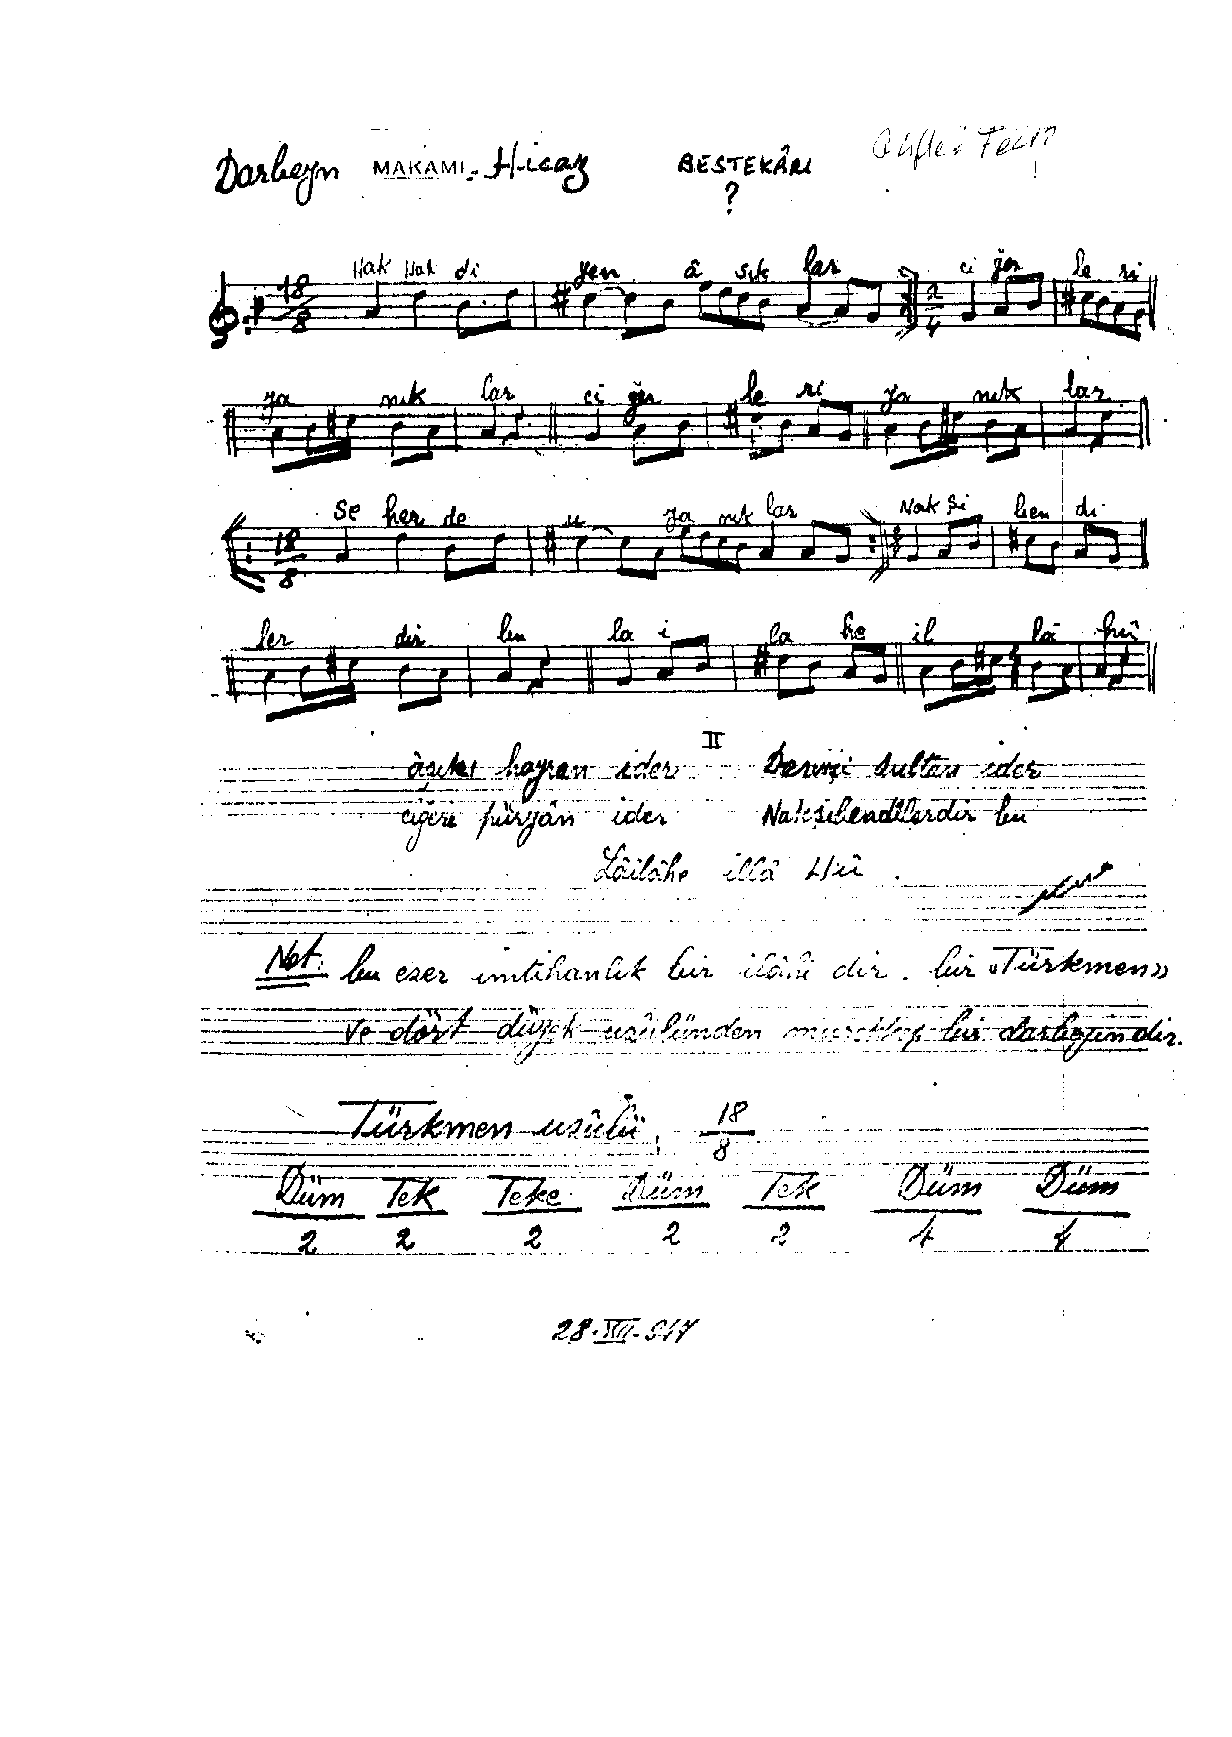 Darbeyn MAKAMI Hicaz BESTEKÂRI
?
18 8 Hak Hak di yen â şık lar 2 4 ci ğer le ri
ya nık lar ci ğer le ri ya nık lar
18 8 Se her de u ya nık lar Nak şi ben di
ler dir bu la i la he il lâ hû
II
âşıkı hayran ider Dervişi sultan ider
ciğeri püryân ider Nakşibendîlerdir bu
Lâilâhe illâ Hû
Not: bu eser imtihanlık bir ilâhi dir. bir «Türkmen»
ve dört düyek usûlünden mürekkep bir darbeyindir.
Türkmen usûlü 18 8
Düm Tek Teke Düm Tek Düm Düm
2 2 2 2 2 4 4